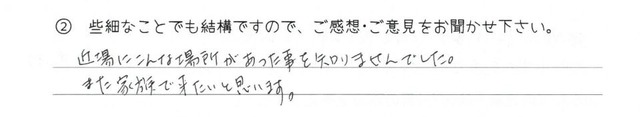 ② 些細なことでも結構ですので、ご感想・ご意見をお聞かせ下さい。
近場にこんな場所があった事を知りませんでした。
また家族で来たいと思います。